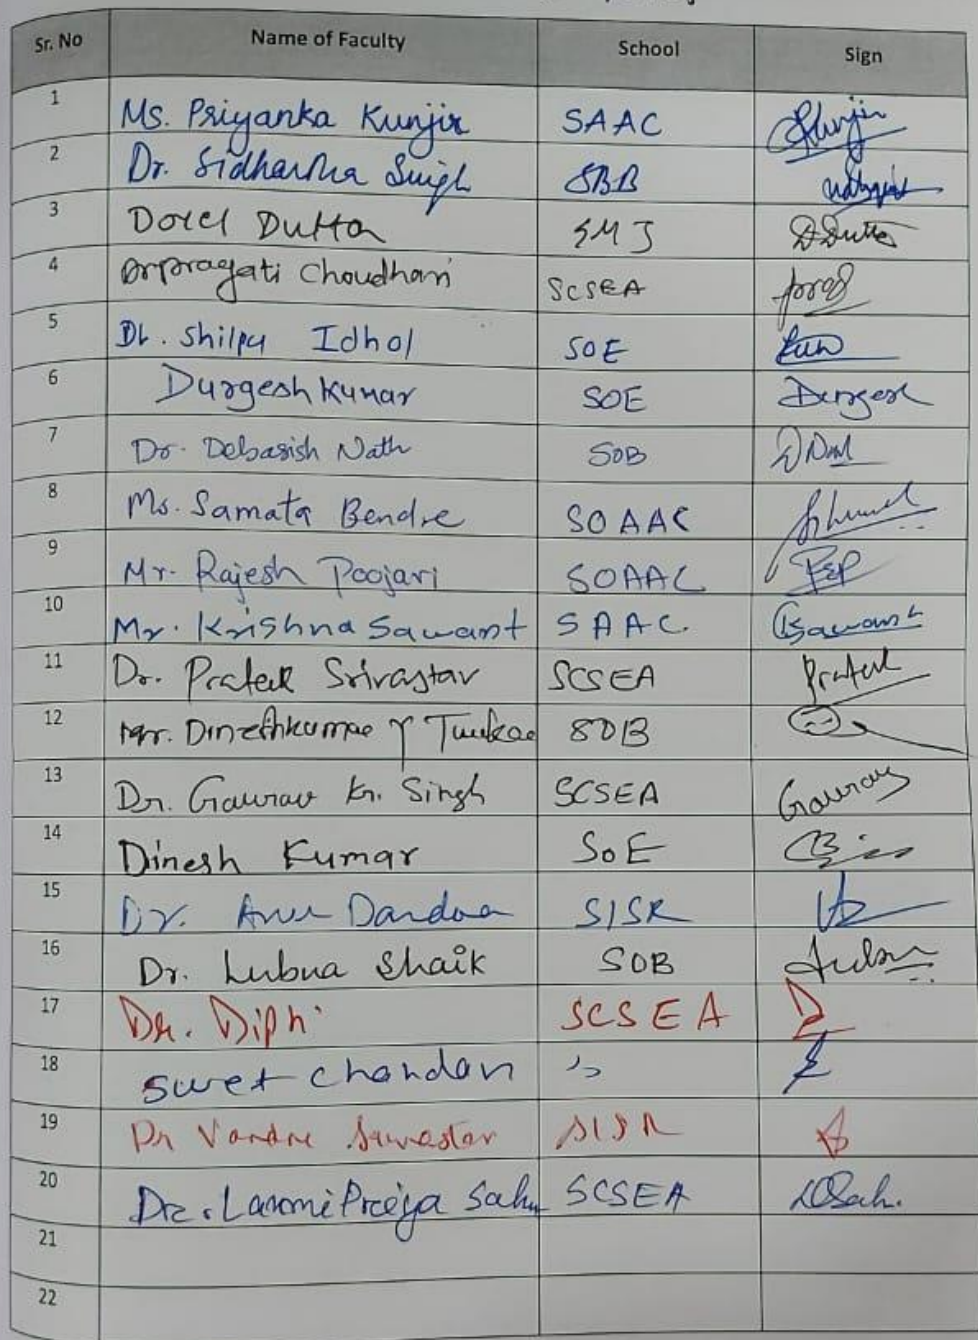 Sr. No Name of Faculty School Sign
1 Ms. Priyanka Kunjir SAAC
2 Dr. Sidhartha Singh SBB
3 Dorel Dutta SMJ DDutta
4 Dr pragati Choudhari SCSEA
5 Dr. Shilpa Idhol SOE
6 Durgesh Kumar SOE Durgesh
7 Dr. Debasish Nath SOB
8 Ms. Samata Bendre SOAAC
9 Mr. Rajesh Poojari SOAAC
10 Mr. Krishna Sawant SAAC. KSawant
11 Dr. Prateek Srivastav SCSEA Prateek
12 Mr. Dineshkumar SOB
13 Dr. Gaurav Kr. Singh SCSEA Gaurav
14 Dinesh Kumar SoE
15 Dr. SISR
16 Dr. Lubna Shaik SOB
17 Dr. Dipti SCSEA
18 Swet chandan ,,
19 Dr SISR
20 Dr. Laxmi Preeya Sahu SCSEA
21
22